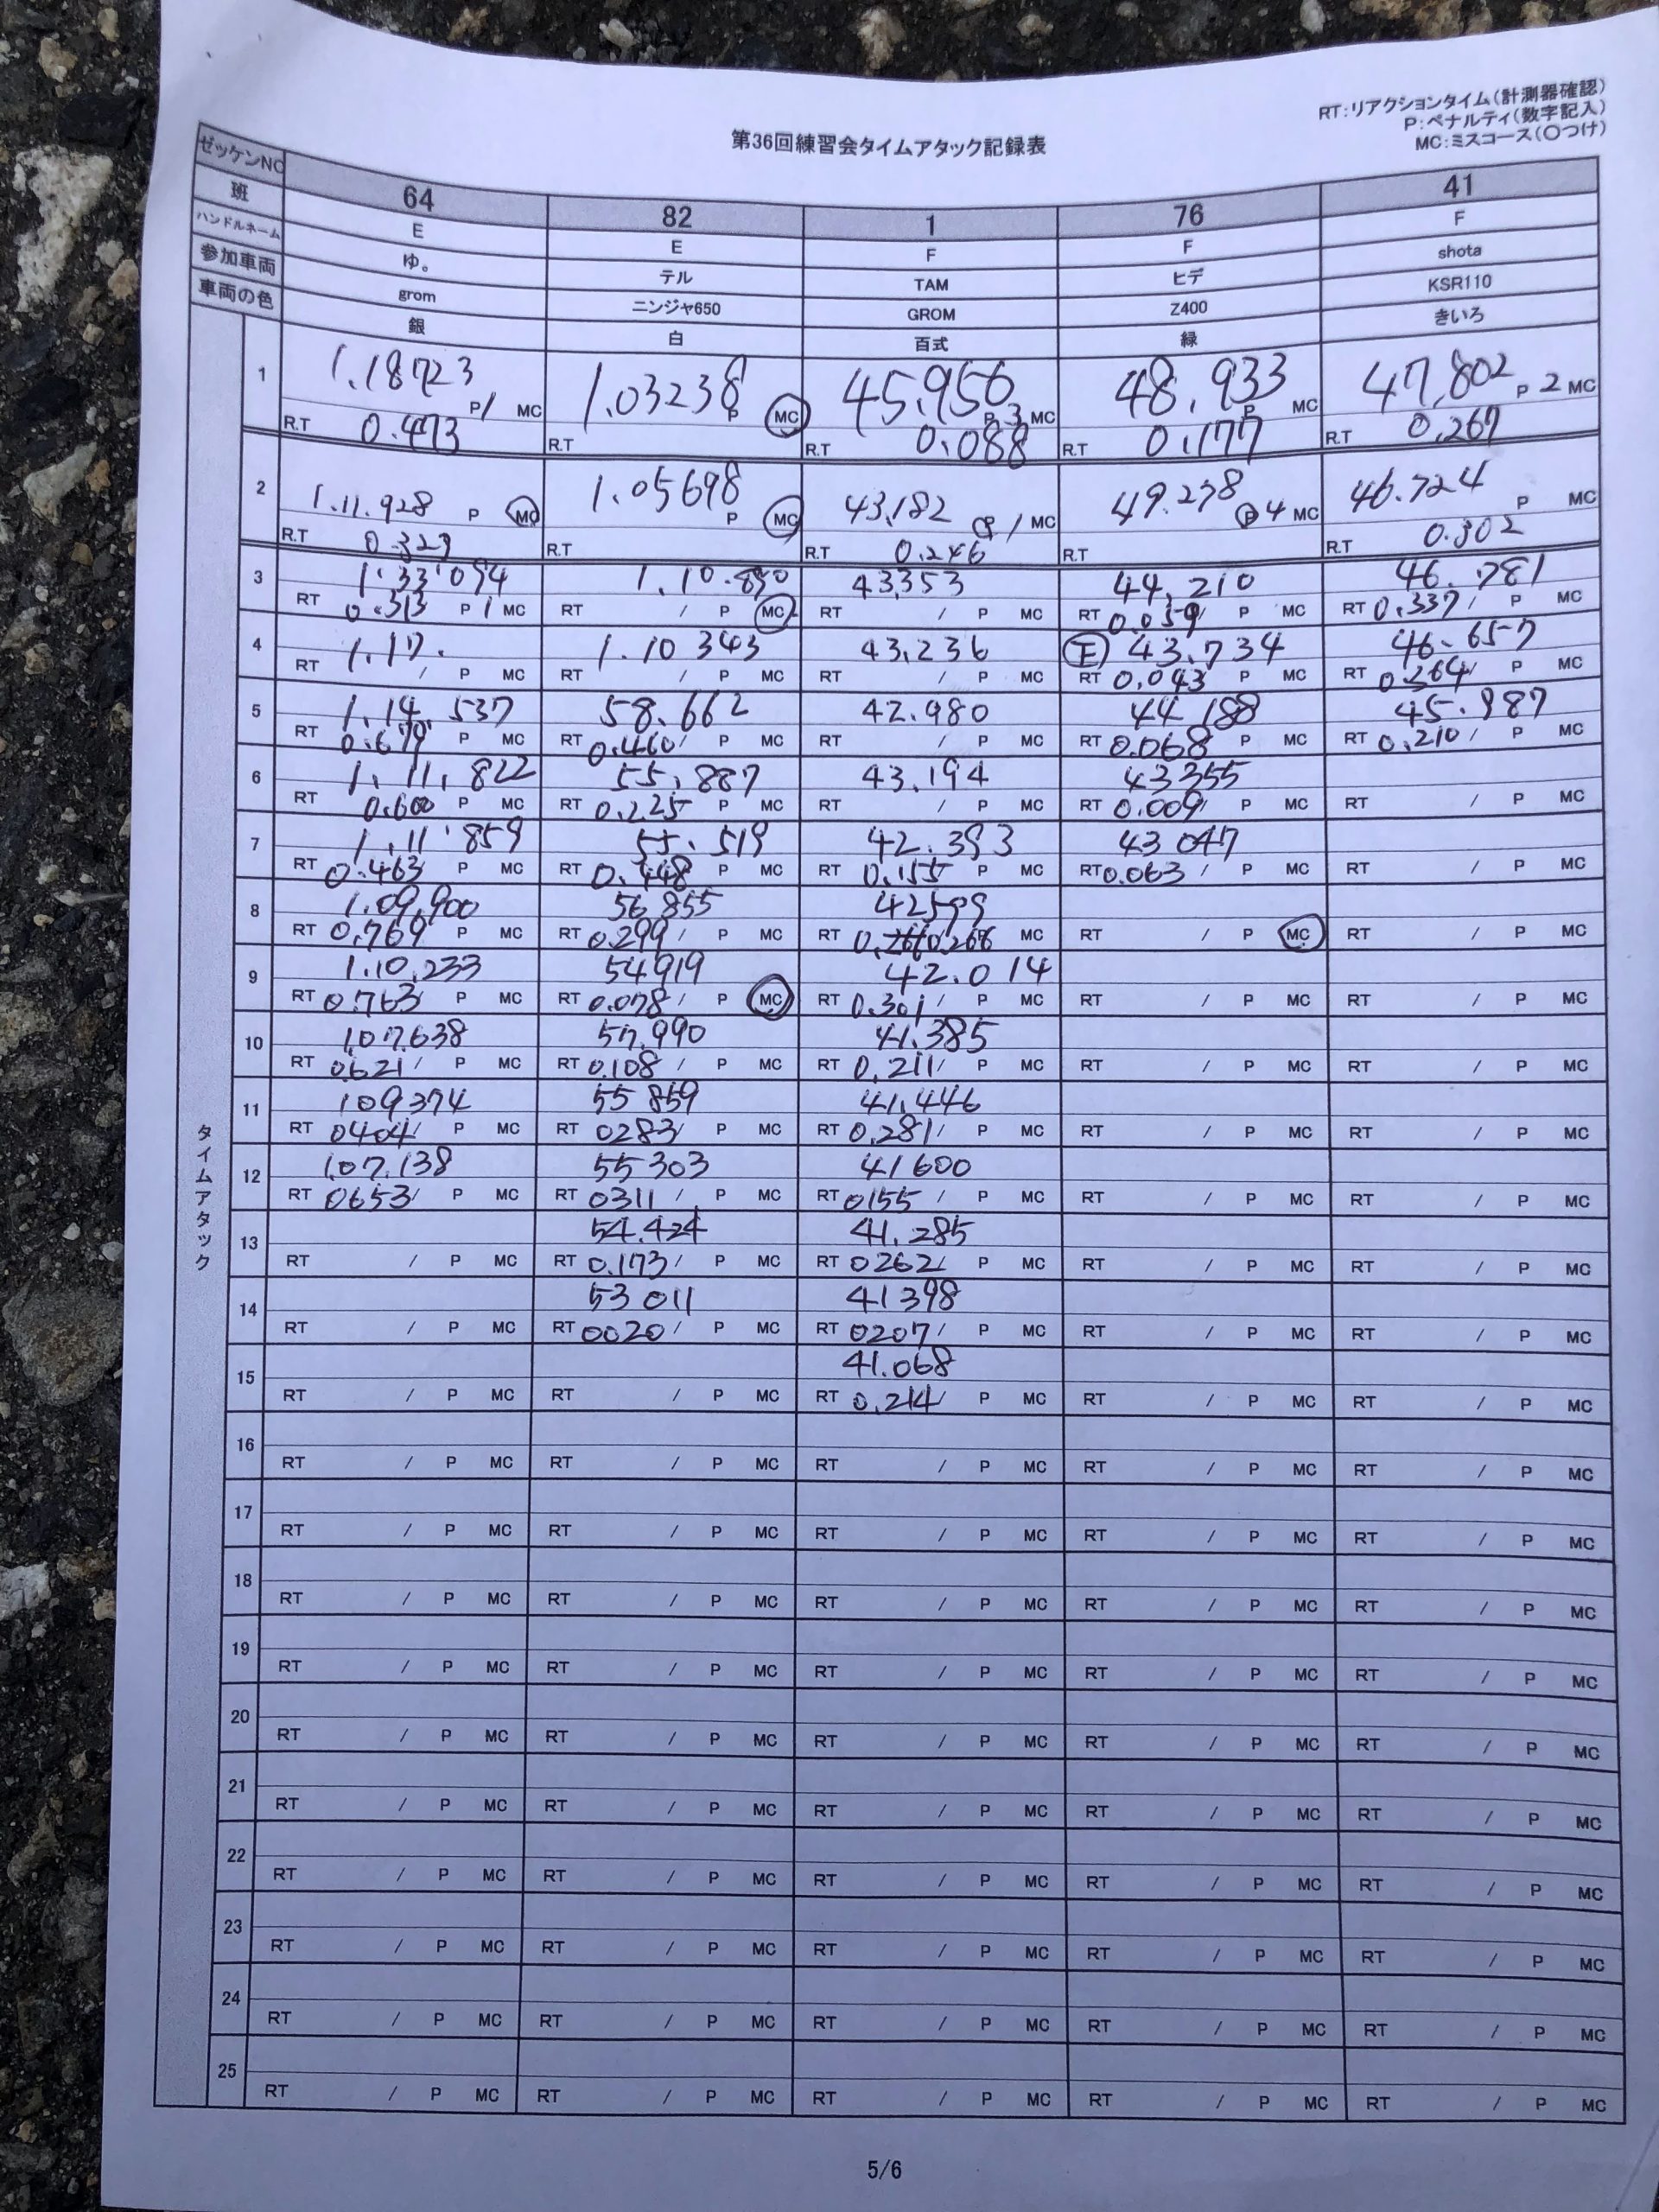 RT:リアクションタイム(計測器確認)
P:ペナルティ(数字記入)
MC:ミスコース(○つけ)
第36回練習会タイムアタック記録表
ゼッケンNO 64 82 1 76 41
班 E E F F F
ハンドルネーム ゆ。 テル TAM ヒデ shota
参加車両 grom ニンジャ650 GROM Z400 KSR110
車両の色 銀 白 百式 緑 きいろ
タイムアタック
1 1.18723 1.03238 45.956 48.933 47.802
P1 MC P MC P 3 MC P MC P 2 MC
R.T 0.473 R.T R.T 0.088 R.T 0.177 R.T 0.267
2 1.11.928 1.05698 43.182 49.278 46.724
P MC P MC P 1 MC P 4 MC P MC
R.T 0.329 R.T R.T 0.246 R.T R.T 0.302
3 1'33'094 1.10.890 43.353 44.210 46.781
RT 0.313 P 1 MC RT / P MC RT / P MC RT 0.059/ P MC RT 0.337/ P MC
4 1.17. 1.10 343 43.236 43.734 46.657
RT / P MC RT / P MC RT / P MC RT 0.043 P MC RT 0.264/ P MC
5 1.14 537 58.662 42.980 44 188 45.987
RT 0.679 P MC RT 0.460/ P MC RT / P MC RT 0.068 P MC RT 0.210/ P MC
6 1.11.822 55.887 43.194 43355
RT 0.600 P MC RT 0.225 P MC RT / P MC RT 0.009/ P MC RT / P MC
7 1.11'859 55.519 42.393 43 047
RT 0.463/ P MC RT 0.448 P MC RT 0.155 P MC RT 0.063 / P MC RT / P MC
8 1.09.900 56 855 42599
RT 0.769 P MC RT 0.299/ P MC RT 0.268 MC RT / P MC RT / P MC
9 1.10.233 54919 42.014
RT 0.763/ P MC RT 0.078/ P MC RT 0.301/ P MC RT / P MC RT / P MC
10 1.07.638 57.990 41.385
RT 0.621/ P MC RT 0.108/ P MC RT 0.211/ P MC RT / P MC RT / P MC
11 109374 55 859 41.446
RT 0404/ P MC RT 0283/ P MC RT 0.281/ P MC RT / P MC RT / P MC
12 1.07.138 55303 41600
RT 0653/ P MC RT 0311/ P MC RT 0155/ P MC RT / P MC RT / P MC
13 54.424 41.285
RT / P MC RT 0.173/ P MC RT 0262/ P MC RT / P MC RT / P MC
14 53 011 41398
RT / P MC RT 0020/ P MC RT 0207/ P MC RT / P MC RT / P MC
15 41.068
RT / P MC RT / P MC RT 0.214/ P MC RT / P MC RT / P MC
16
RT / P MC RT / P MC RT / P MC RT / P MC RT / P MC
17
RT / P MC RT / P MC RT / P MC RT / P MC RT / P MC
18
RT / P MC RT / P MC RT / P MC RT / P MC RT / P MC
19
RT / P MC RT / P MC RT / P MC RT / P MC RT / P MC
20
RT / P MC RT / P MC RT / P MC RT / P MC RT / P MC
21
RT / P MC RT / P MC RT / P MC RT / P MC RT / P MC
22
RT / P MC RT / P MC RT / P MC RT / P MC RT / P MC
23
RT / P MC RT / P MC RT / P MC RT / P MC RT / P MC
24
RT / P MC RT / P MC RT / P MC RT / P MC RT / P MC
25
RT / P MC RT / P MC RT / P MC RT / P MC RT / P MC
5/6